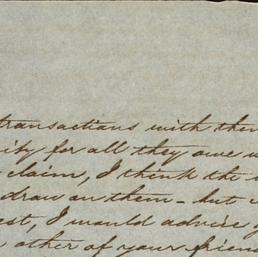 transactions with them
ity for all they owe
claim, I think the
draw on them - but
est, I would advise
other of your friend